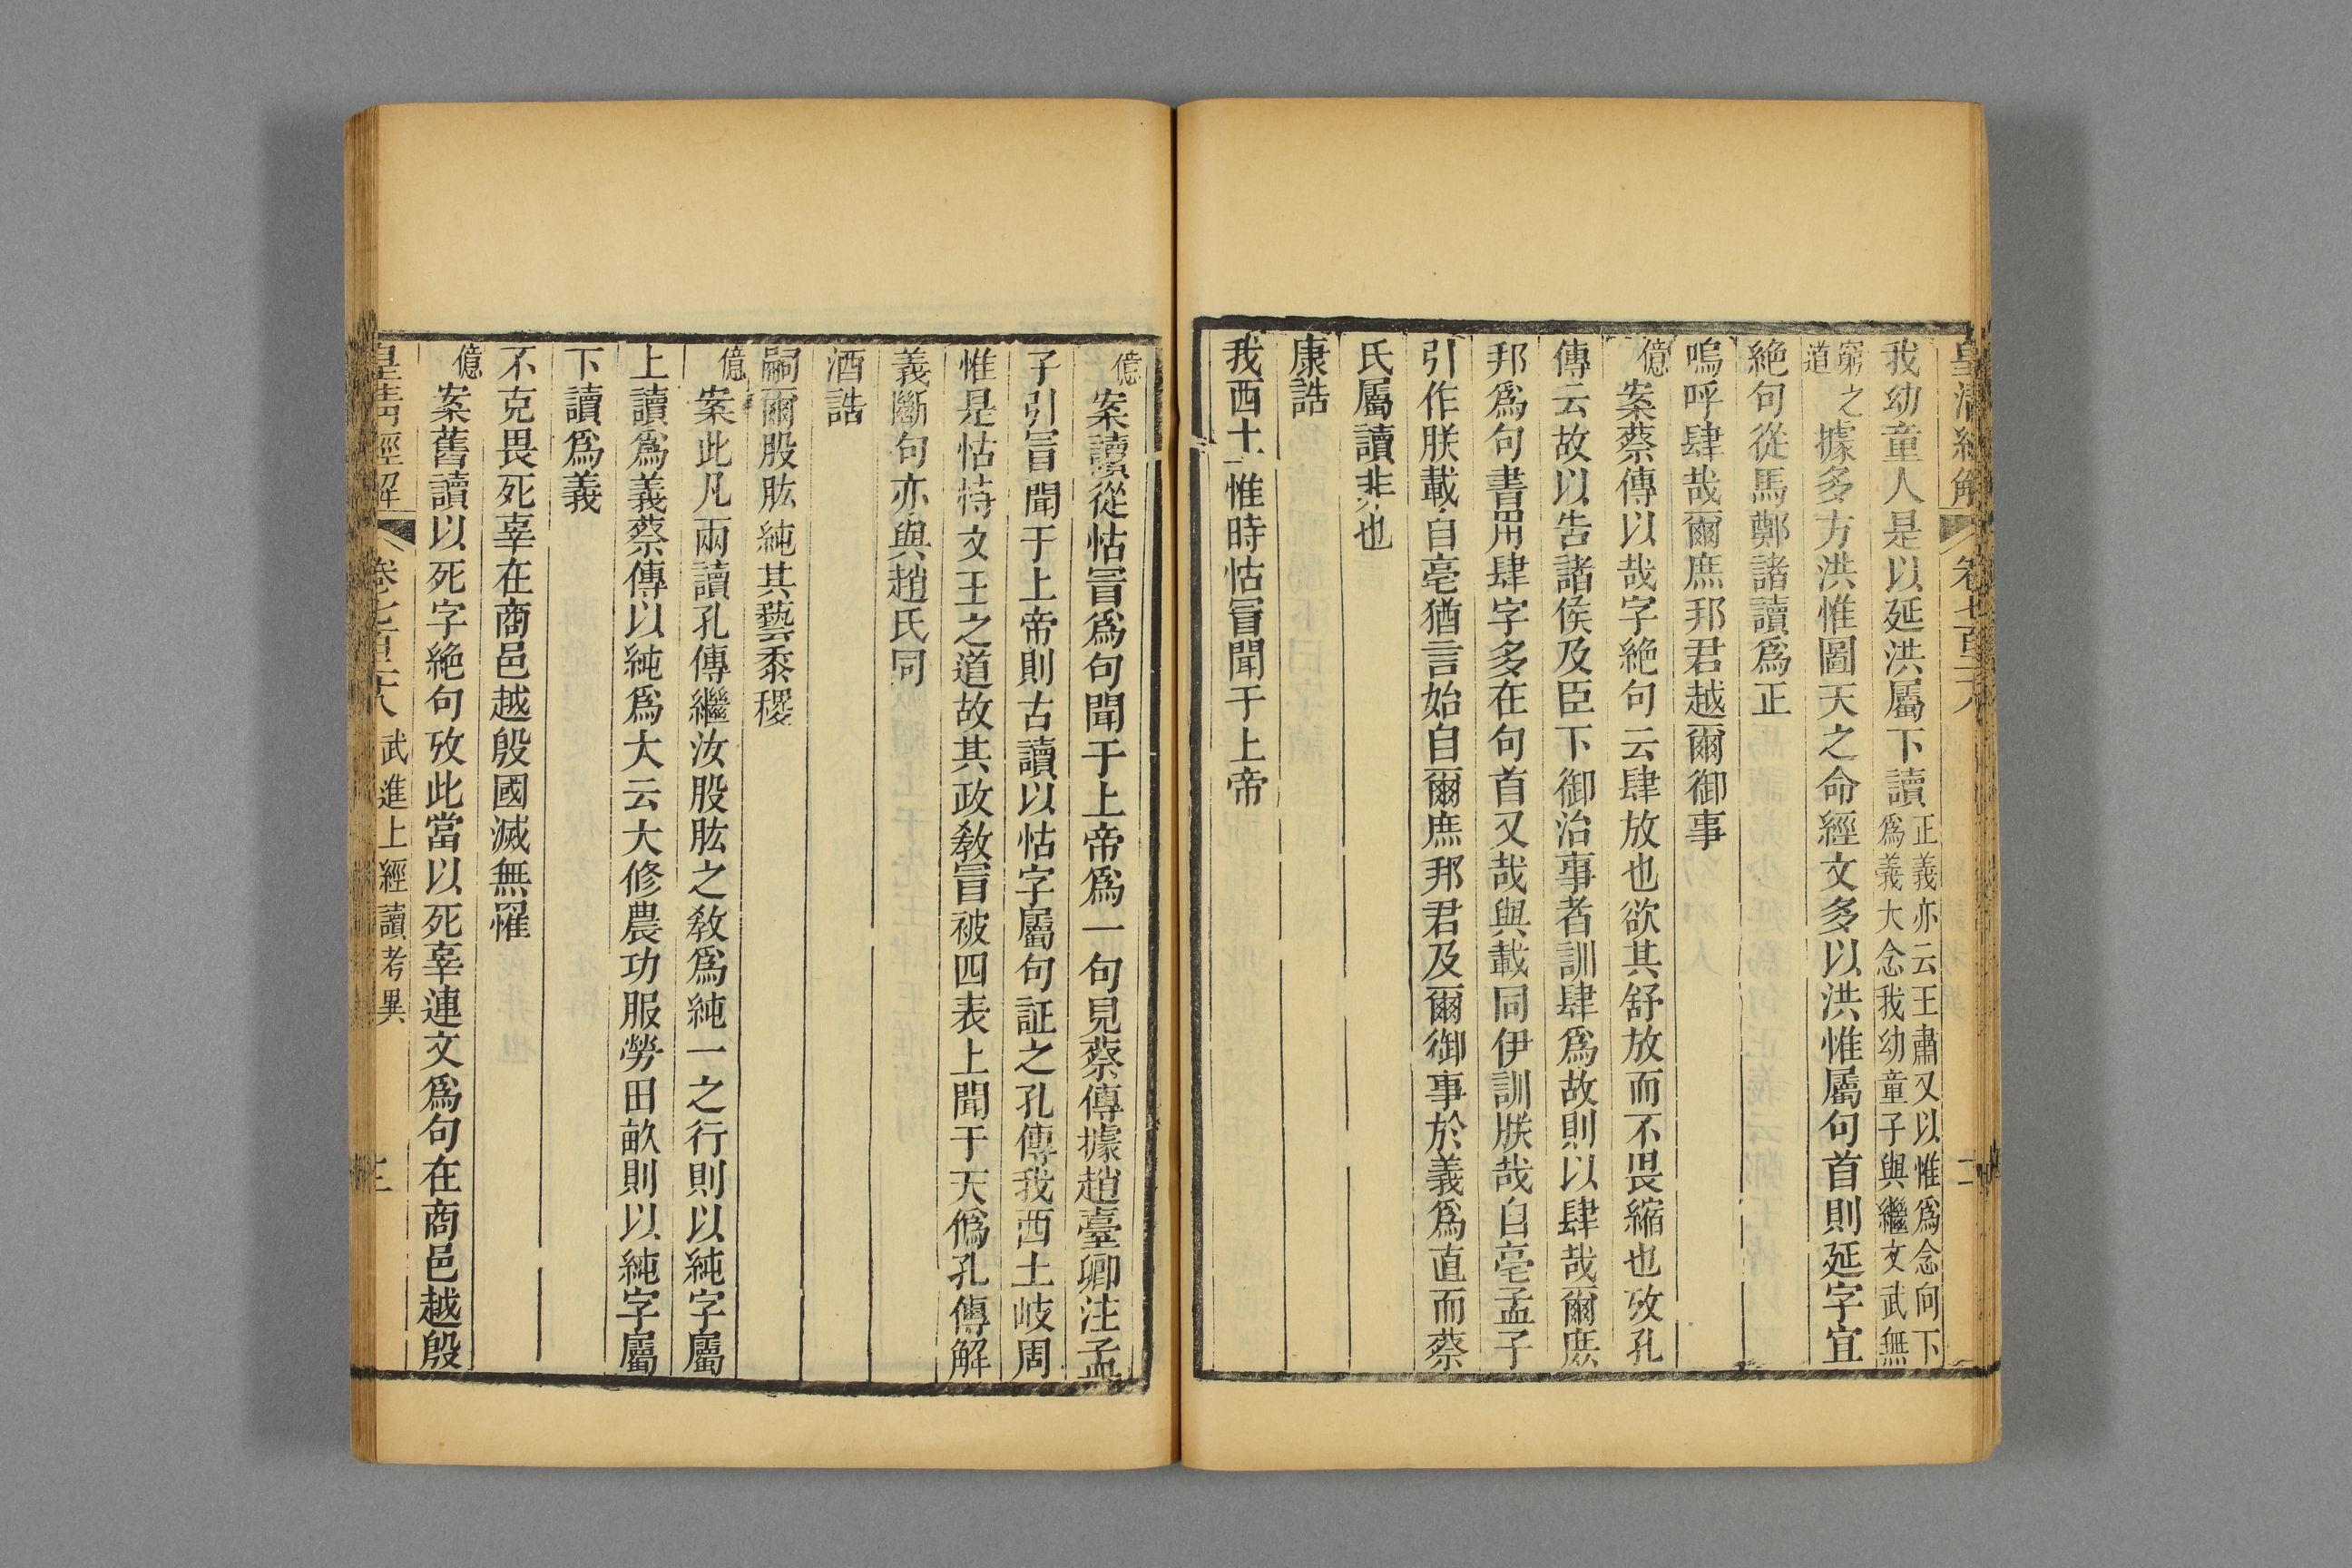 皇清經解 卷七百二十八 二
我幼童人是以延洪屬下讀正義亦云王肅又以惟爲念向下爲義大念我幼童子與繼文武無
窮之道據多方洪惟圖天之命經文多以洪惟屬句首則延字宜
絶句從馬鄭諸讀爲正
嗚呼肆哉爾庶邦君越爾御事
億案蔡傳以哉字絶句云肆放也欲其舒放而不畏縮也攷孔
傳云故以告諸侯及臣下御治事者訓肆爲故則以肆哉爾庶
邦爲句書用肆字多在句首又哉與載同伊訓朕哉自亳孟子
引作朕載自亳猶言始自爾庶邦君及爾御事於義爲直而蔡
氏屬讀非也
康誥
我西土惟時怙冒聞于上帝
億案讀從怙冒爲句聞于上帝爲一句見蔡傳據趙臺卿注孟
子引冒聞于上帝則古讀以怙字屬句証之孔傳我西土岐周
惟是怙恃文王之道故其政教冒被四表上聞于天僞孔傳解
義斷句亦與趙氏同
酒誥
嗣爾股肱純其藝黍稷
億案此凡兩讀孔傳繼汝股肱之敎爲純一之行則以純字屬
上讀爲義蔡傳以純爲大云大修農功服勞田畝則以純字屬
下讀爲義
不克畏死辜在商邑越殷國滅無罹
億案舊讀以死字絶句攷此當以死辜連文爲句在商邑越殷
皇清經解 卷七百二十八 武進上經讀考異 三